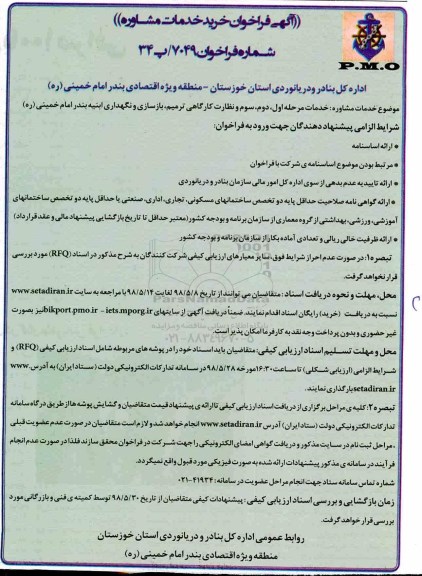 ((آگهی فراخوان خرید خدمات مشاوره))
شماره فراخوان ۷۰۴۹/پ ۳۴
P.M.O
اداره کل بنادر و دریانوردی استان خوزستان - منطقه ویژه اقتصادی بندر امام خمینی (ره)
موضوع خدمات مشاوره: خدمات مرحله اول، دوم، سوم و نظارت کارگاهی ترمیم، بازسازی و نگهداری ابنیه بندر امام خمینی (ره)
شرایط الزامی پیشنهاد دهندگان جهت ورود به فراخوان:
* ارائه اساسنامه
* مرتبط بودن موضوع اساسنامه ی شرکت با فراخوان
* ارائه تاییدیه عدم بدهی از سوی اداره کل امور مالی سازمان بنادر و دریانوردی
* ارائه گواهی نامه صلاحیت حداقل پایه دو تخصص ساختمانهای مسکونی، تجاری، اداری، صنعتی یا حداقل پایه دو تخصص ساختمانهای
آموزشی، ورزشی، بهداشتی از گروه معماری از سازمان برنامه و بودجه کشور (معتبر حداقل تا تاریخ بازگشایی پیشنهاد مالی و عقد قرارداد)
* ارائه ظرفیت خالی ریالی و تعدادی آماده بکار از سازمان برنامه و بودجه کشور
تبصره ۱: در صورت عدم احراز شرایط فوق، سایر معیارهای ارزیابی کیفی شرکت کنندگان به شرح مذکور در اسناد (RFQ) مورد بررسی
قرار نخواهد گرفت.
محل، مهلت و نحوه دریافت اسناد: متقاضیان می توانند از تاریخ ۹۸/۵/۸ لغایت ۹۸/۵/۱۴ با مراجعه به سایت www.setadiran.ir
نسبت به دریافت (خرید) رایگان اسناد اقدام نمایند. ضمناً دریافت آگهی از سایتهای iets.mporg.ir - bikport.pmo.ir نیز بصورت
غیر حضوری و بدون پرداخت وجه نقد به کارفرما امکان پذیر است.
محل و مهلت تسلیم اسناد ارزیابی کیفی: متقاضیان باید اسناد خود را در پوشه های مربوطه شامل اسناد ارزیابی کیفی (RFQ) و
شرایط الزامی (ارزیابی شکلی) تا ساعت ۱۶:۳۰ مورخه ۹۸/۵/۲۸ در سامانه تدارکات الکترونیکی دولت (ستاد ایران) به آدرس www.
setadiran.ir بارگذاری نمایند.
تبصره ۲: کلیه ی مراحل برگزاری از دریافت اسناد ارزیابی کیفی تا ارائه ی پیشنهاد قیمت متقاضیان و گشایش پوشه ها از طریق درگاه سامانه
تدارکات الکترونیکی دولت (ستاد ایران) آدرس www.setadiran.ir انجام خواهد شد و لازم است متقاضیان در صورت عدم عضویت قبلی
، مراحل ثبت نام در سایت مذکور و دریافت گواهی امضای الکترونیکی را جهت شرکت در فراخوان محقق سازند فلذا در صورت عدم انجام
فرآیند در سامانه ی مذکور پیشنهادات ارائه شده به صورت فیزیکی مورد قبول واقع نمیگردد.
شماره تماس سامانه ستاد جهت انجام مراحل عضویت در سامانه: ۴۱۹۳۴-۰۲۱
زمان بازگشایی و بررسی اسناد ارزیابی کیفی: پیشنهادات کیفی متقاضیان از تاریخ ۹۸/۵/۳۰ توسط کمیته ی فنی و بازرگانی مورد
بررسی قرار خواهد گرفت.
روابط عمومی اداره کل بنادر و دریانوردی استان خوزستان
منطقه ویژه اقتصادی بندر امام خمینی (ره)